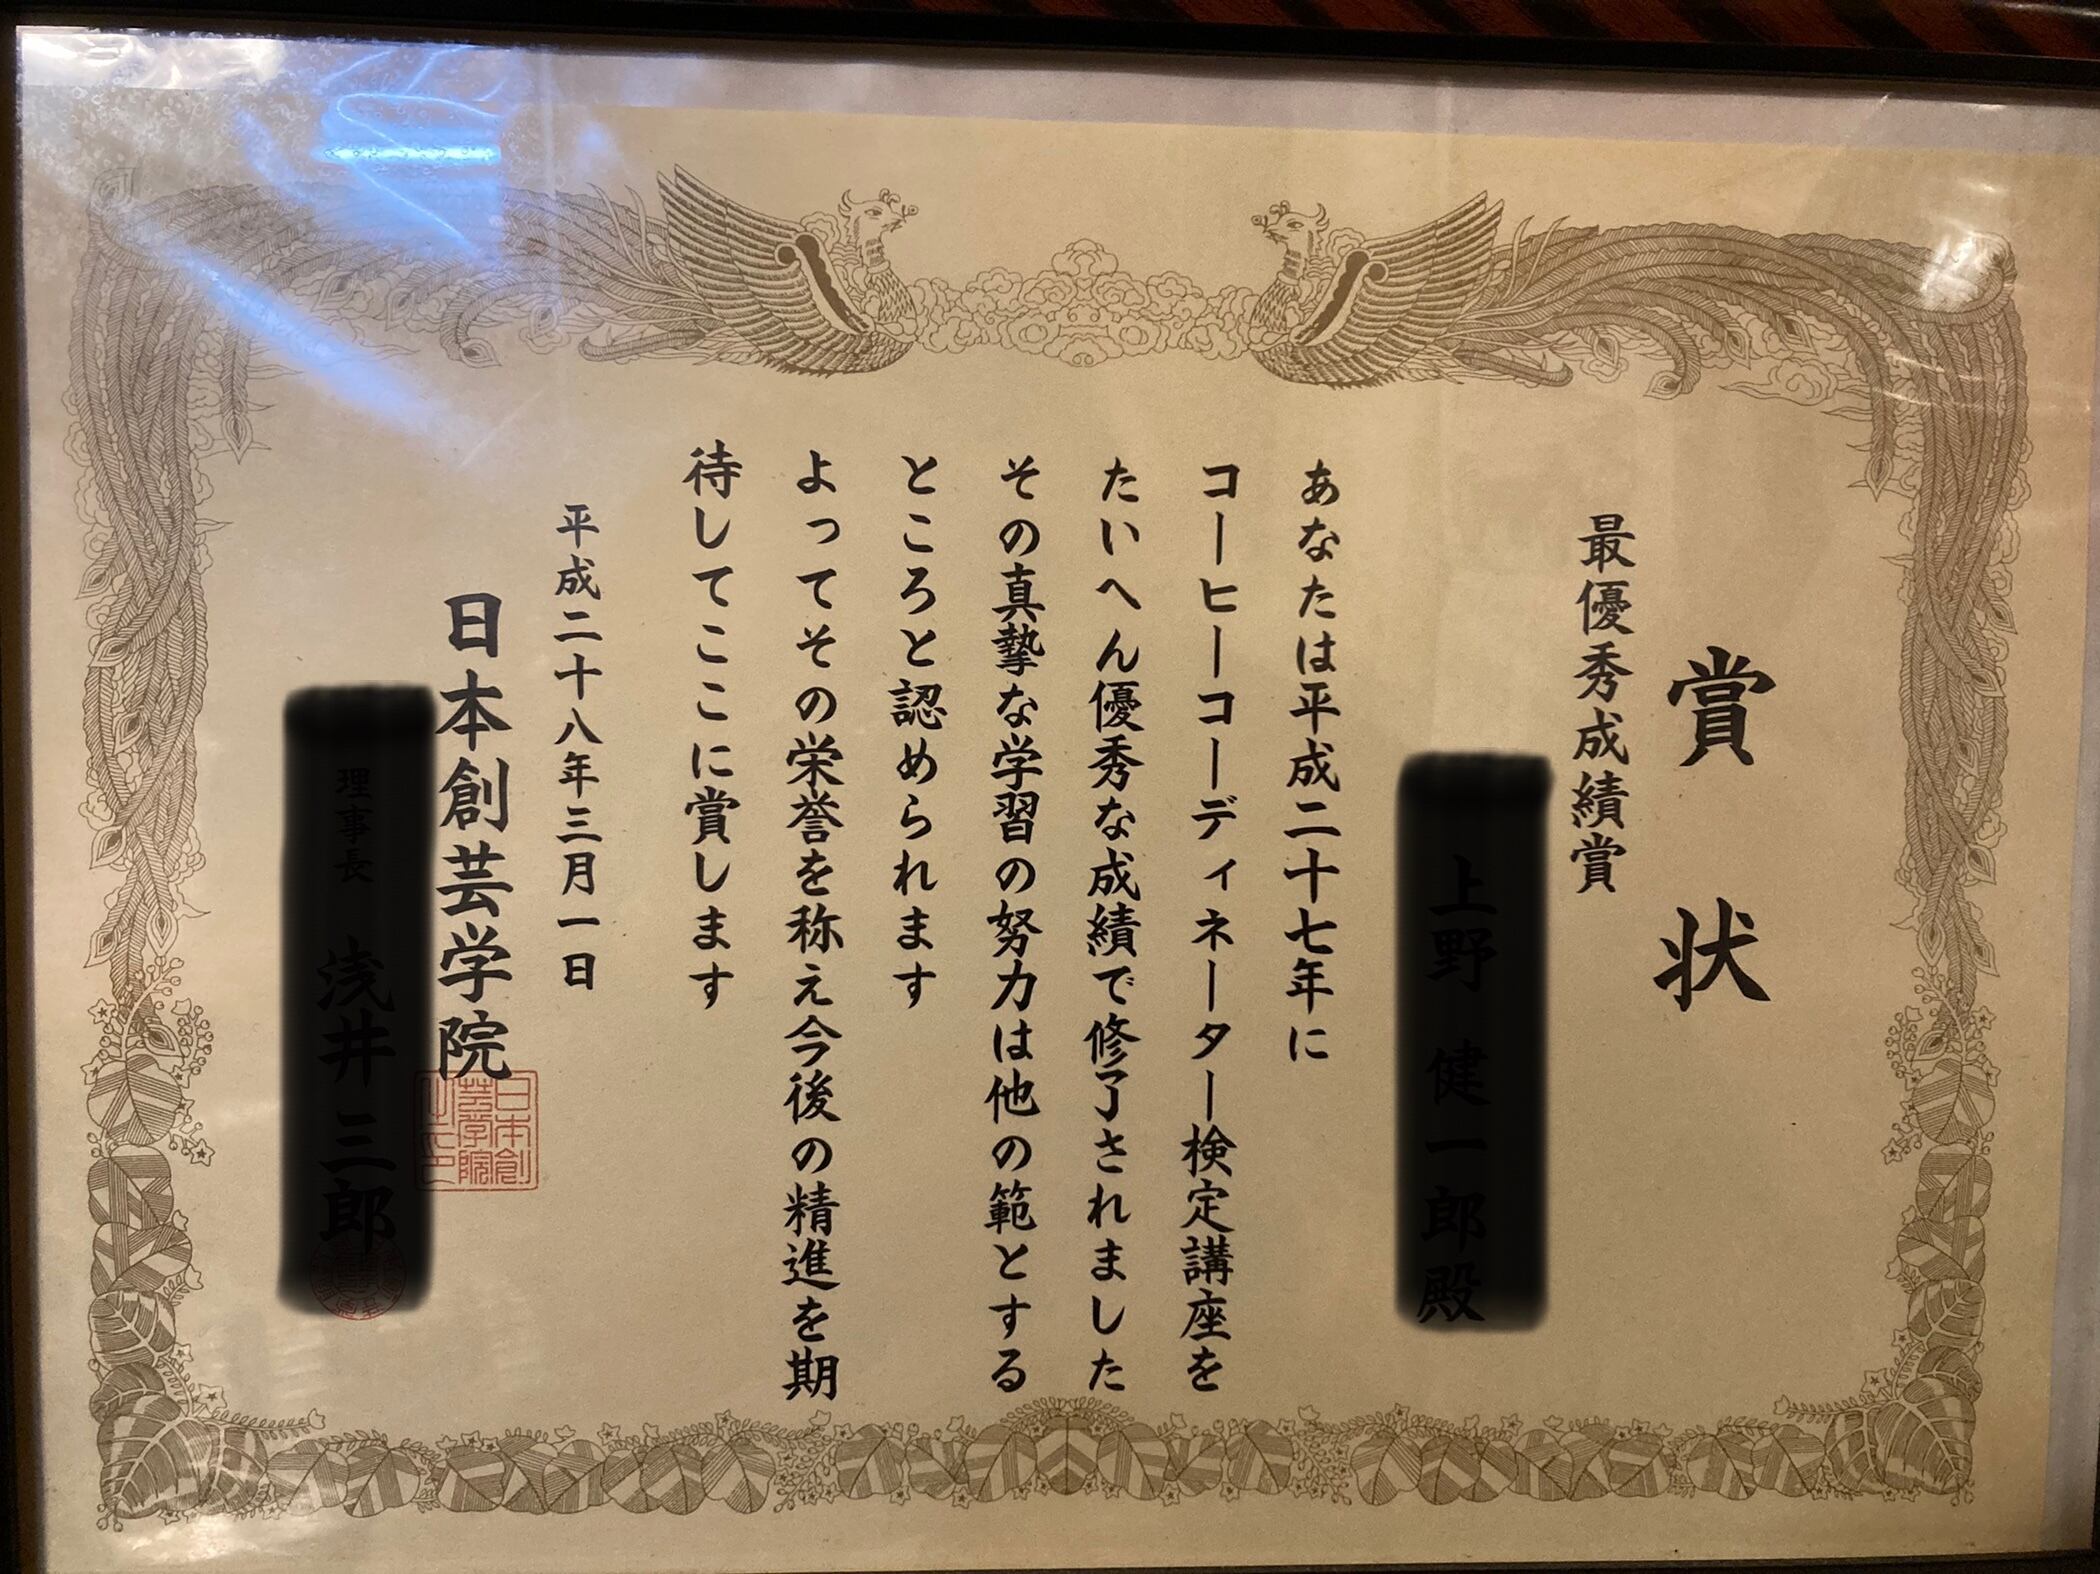 賞状
最優秀成績賞
上野 健一郎殿
あなたは平成二十七年に
コーヒーコーディネーター検定講座を
たいへん優秀な成績で修了されました
その真摯な学習の努力は他の範とする
ところと認められます
よってその栄誉を称え今後の精進を期
待してここに賞します
平成二十八年三月一日
日本創芸学院
日本創芸学院之印
理事長 浅井三郎